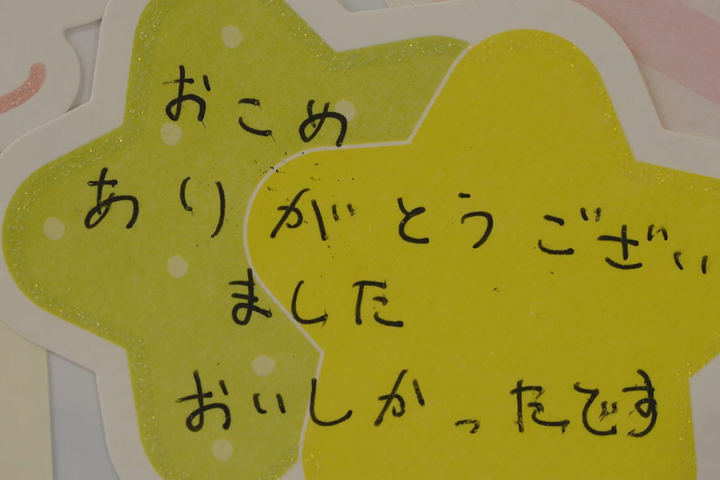 おこめ
ありがとうござい
ました
おいしかったです